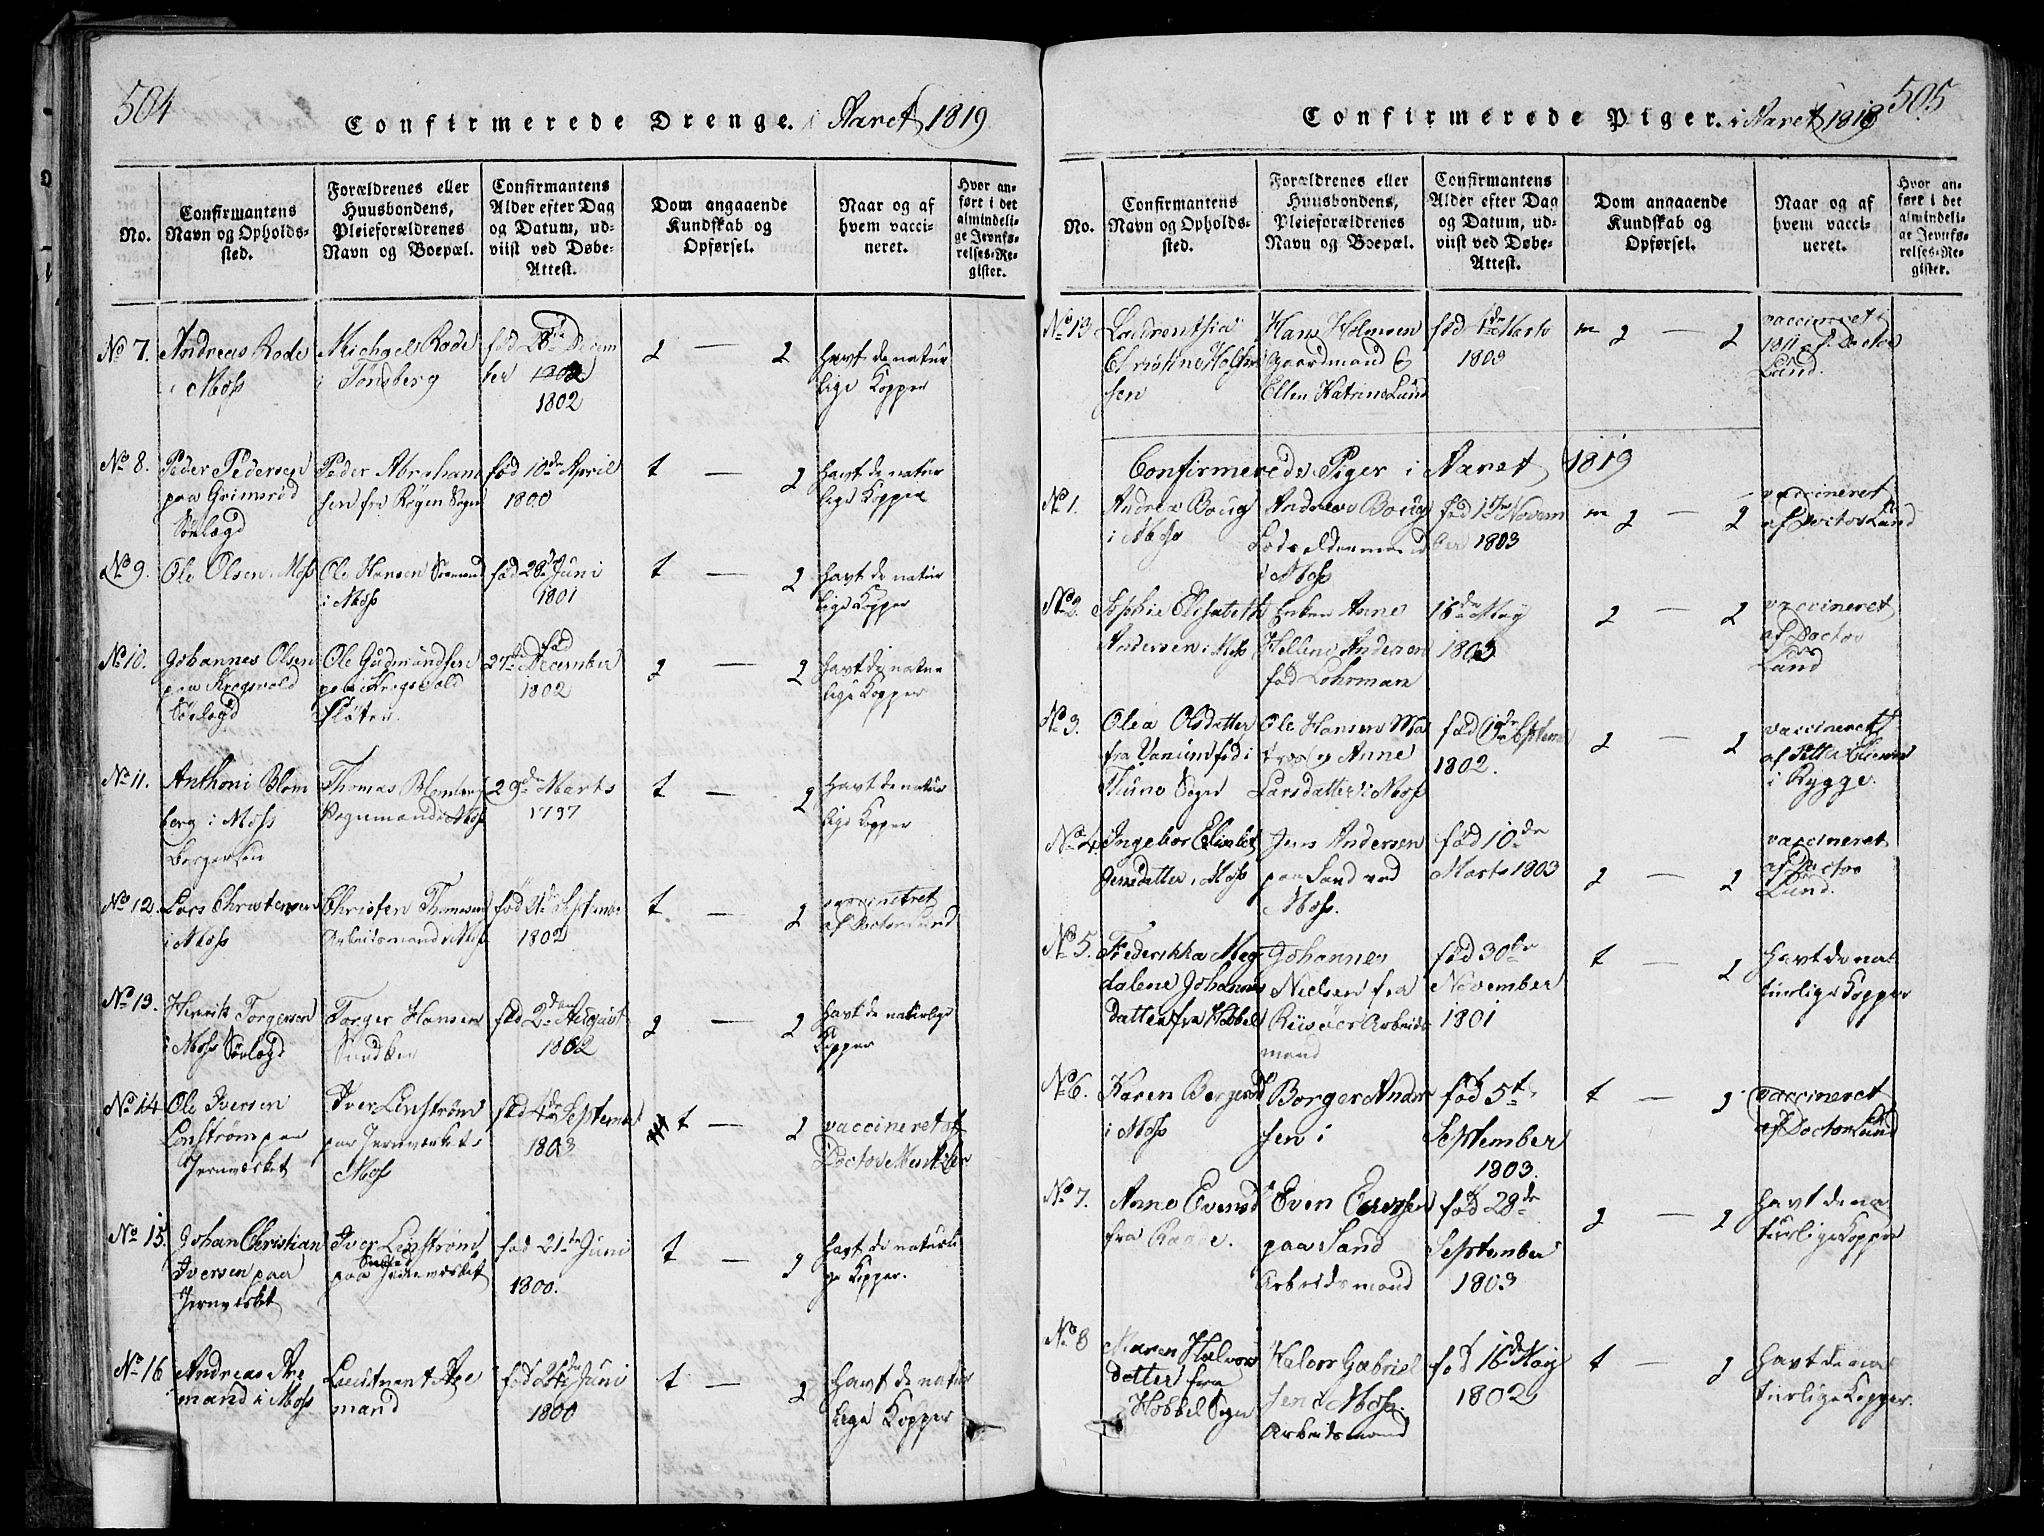 504
Confirmerede Drenge. i Aaret 1819
No.
Confirmantens
Navn og Opholds-
sted.
Forældrenes eller
Huusbondens,
Pleieforældrenes
Navn og Boepæl.
Confirmantens
Alder efter Dag
og Datum, ud-
viist ved Døbe-
Attest.
Dom angaaende
Kundskab og
Opførsel.
Naar og af
hvem vacci-
neret.
Hvor an-
ført i det
almindeli-
ge Jevnfø-
relses-Re-
gister.
No 7.
Andreas Rode
i Moss
Michael Rode
i Tønsberg
fød 28de Decem
ber 1802
1802
2 — 2
havt de natur
lige Kopper
No 8.
Peder Pedersen
paa Grimsrød
Sørlægd
Peder Abraham
sen fra Røgen Sogn
fød 10de April
1800
t — 2
havt de natur
lige Kopper
No 9.
Ole Olsen Moss
Ole Hansen Søemand
i Moss
fød 28de Juni
1801
t — 2
havt de natur
lige Kopper
No 10.
Johannes Olsen
paa Krogsvold
Sørlægd
Ole Gudmundsen
paa Krogsvold
Fløten.
fød
27de December
1802
2 — 2
havt de natur
lige Kopper
No 11.
Anthoni Blom
berg i Moss
Borgersen
Thomas Blomberg
Vognmand i Moss
29de Marts
1797
t — 2
havt de natur
lige Kopper
No 12.
Lars Christensen
i Moss
Christen Thomesen
Arbeidsmand i Moss
fød 21de Septembr
1802
t. — 2
vaccineret
af Doctor Lund
No 13.
Henrik Torgersen
i Moss Sørlægd
Torger Hansen
fød 2den August
1802
2 — 2
havt de naturlige
Kopper
No 14
Ole Iversen
Linstrøm paa
Jernværket
Iver Linstrøm
paa Jernværket
Moss
fød 4de September
1803
t — 2
vaccineret af
Doctor
No 15.
Johan Christian
Iversen paa
Jernværket
Iver Linstrøm
Smed
paa Jernværket
fød 21de Juni
1800.
t — 2
havt de naturli
ge Kopper.
No 16
Andreas Aae
mand i Moss
Lieutnant Aae
mand
fød 24de Juni
1800
t — 2
havt de natur
lige Kopper
505
Confirmerede Piger. i Aaret 1818
No.
Confirmantens
Navn og Opholds-
sted.
Forældrenes eller
Huusbondens,
Pleieforældrenes
Navn og Boepæl.
Confirmantens
Alder efter Dag
og Datum, ud-
viist ved Døbe-
Attest.
Dom angaaende
Kundskab og
Opførsel.
Naar og af
hvem vacci-
neret.
Hvor an-
ført i det
almindeli-
ge Jevnfø-
relses-Re-
gister.
No 13.
Laurentsia
Christine Holm
sen
Hans Holmsen
Gaardmand &
Ellen Katrine Lund
fød 1de Marts
1803
m 2 — 2
vaccineret
1811 af Doctor
Lund.
Confirmerede Piger i Aaret 1819
No 1.
Andrea Boug
i Moss
Andreas Boug
i Moss
fød 1ste Novem
ber 1803
m 2 — 2
vaccineret
af Doctor Lund
No 2.
Sophie Elisabeth
Andersen i Moss
Enken Anne
Helline Andersen
fød Lohrman
16de May
1803
2 — 2
vaccineret
af Doctor
Lund
No 3.
Olea Olsdatter
fra Vanium fød i
Thuno Sogn
Ole Hansen Ma
tros og Anne
Larsdatter i Moss
fød 19de Septemb
1802.
2 — 2
vaccineret
af
i Rygge.
No 4
Ingebor Elisabet
Jensdatter i Moss
Jens Andersen
paa Sand ved
Moss.
fød 10de
Marts 1803
2 — 2
vaccineret
af Doctor
Lund.
No 5.
Frederikka Mag
dalene Johannes
Datter fra Hobbel
Johannes
Nielsen fra
Riisøer Arbeids
mand
fød 30te
November
1801
t — 2
havt de na
turlige Kopper
No 6.
Karen Borgersd
i Moss
Borger Ander
sen i
fød 5te
September
1803.
t — 2
vaccineret
af Doctor Lund
No 7.
Anne Evensd
fra Raade.
Even Evensen
paa Sand
Arbeidsmand
fød 28de
September
1803
2 — 2
havt de na
turlige Kopper
No 8
Maren Halvors
datter fra
Hobbel Sogn
Halvor Gabriel
sen i Moss.
Arbeidsmand
fød 16de May
1802
t — 2
havt de na
turlige Kopper.